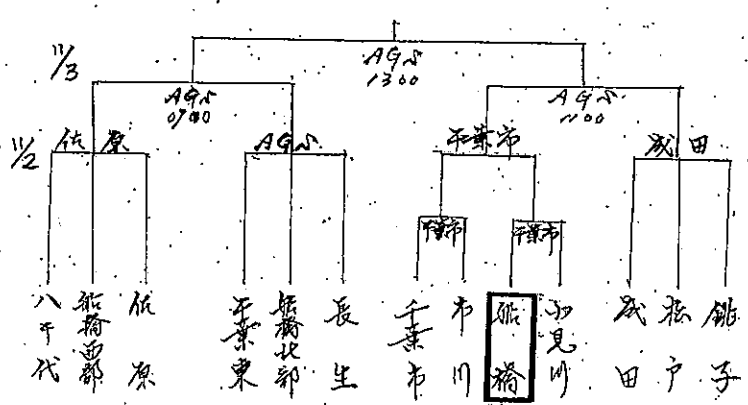 11/3
AGS
1300
AGS
0900
AGS
1100
11/2
佐原
AGS
千葉市
成田
千葉市
千葉市
八千代
船橋西部
佐原
千葉東
船橋北部
長生
千葉市
市川
船橋
花見川
成田
松戸
銚子